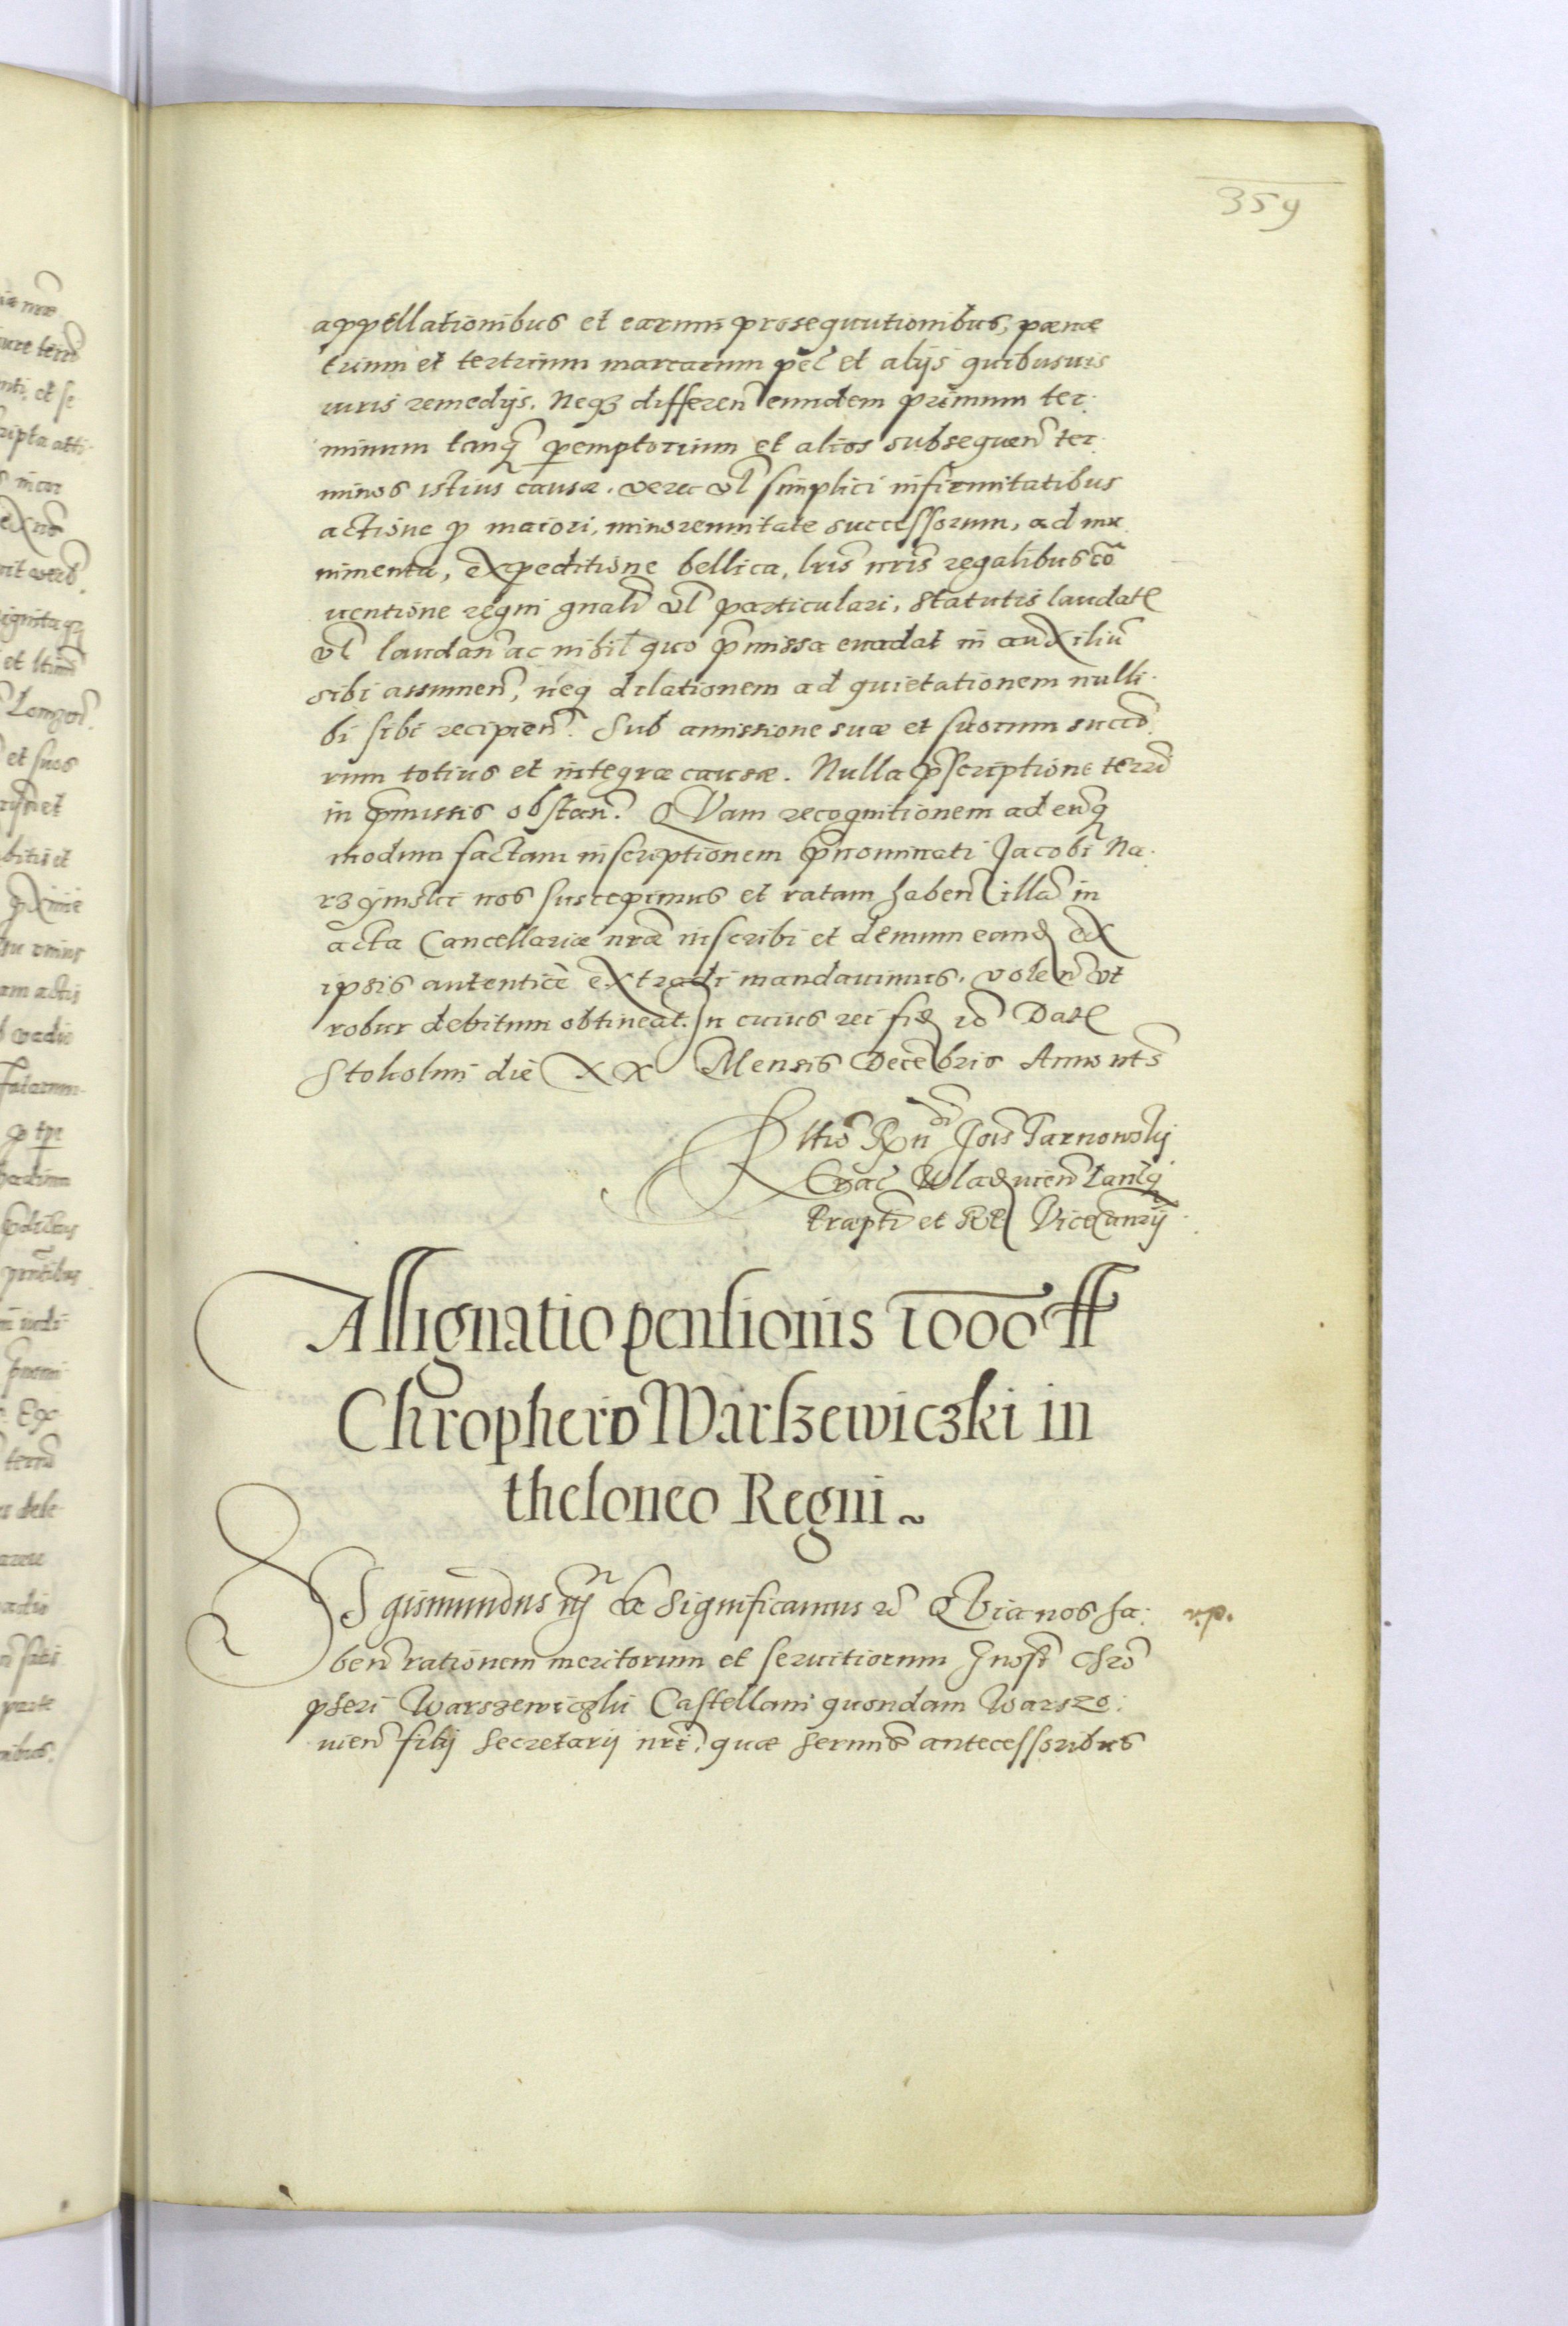 359
appellationibus et earum prosequutionibus, pænæ
trium et tertrium marcarum pec̃ et alijs quibusuis
iuris remedijs. Neq3 differen̄ eundem primum ter:
minum tanq̃ peremptorium et alios subsequen̄ ter:
minos istius causæ. vera vl̃ simplici infirmitatibus
actione p maiori, minorennitate successorum, ad mu
nimenta, expeditione bellica, l̃ris nr̃is regalibus cõ
uentione regni gnali vl̃ particulari, statutis laudat̃
vl̃ laudan̄ ac nihil quo p̃missa euadat in auxiliũ
sibi assumen̄, neq dilationem ad quietationem nulli:
bi sibi recipien̄. Sub amissione suæ et suorum succõ
rum totius et integræ causæ. Nulla p̃scriptione terr̃
in p̃missis obstan̄. QVam recognitionem ad eumq̃
modum factam inscriptionem p̃nominati Jacobi Na:
rzymski nos suscepimus et ratam haben̄ illã in
acta Cancellariæ nr̃æ inscribi et demum eand̃ ex
ipsis autenticè extradi mandauimus. volen̄ vt
robur debitum obtineat. In cuius rei fid̃ rõ Dat̃
Stokolmi die XX Mensis Decẽbris Anno ut s̃
R̃ltio Rn̄di Jois Tarnowskj
Crac̃ Wladvien̄ Lanc̃
Præpti et R P Vicecanrij
Assignatio pensionis 1000 ff
Chrophero Warszewiczki in
theloneo Regni ~
SIgismundus iij &c Significamus r̃ QVia nos ha: rp.
ben̄ rationem meritorum et seruitiorum Gnosi Chrõ
pheri Warszewiczki Castellani quondam Warszo:
uien̄ filij Secretarij nr̃i, quæ sermis antecessoribus